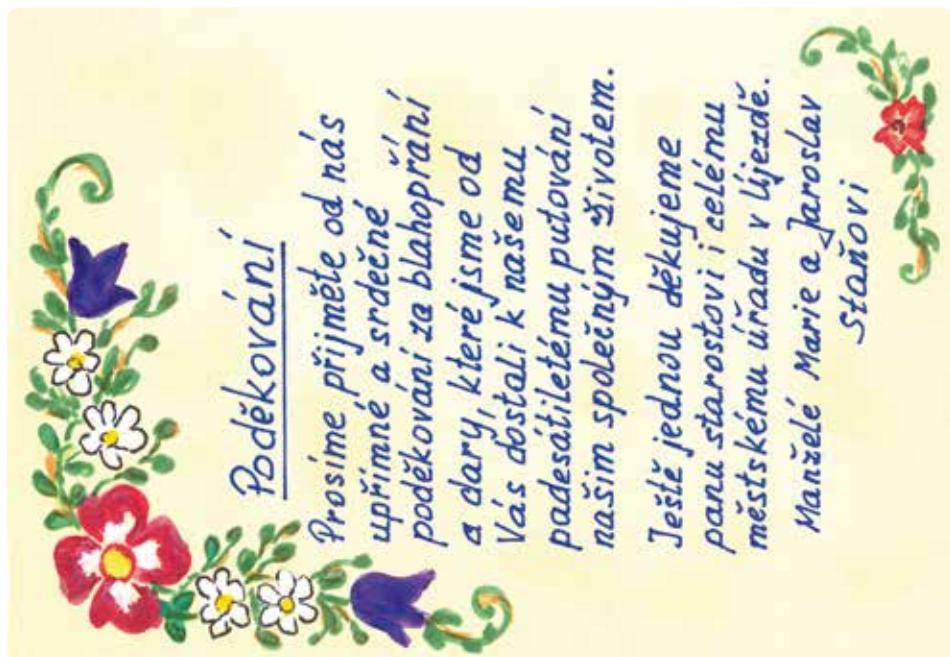 Poděkování
Prosíme přijměte od nás
upřímné a srdečné
poděkování za blahopřání
a dary, které jsme od
Vás dostali k našemu
padesátiletému putování
našim společným životem.
Ještě jednou děkujeme
panu starostovi i celému
městskému úřadu v Újezdě.
Manželé Marie a Jaroslav
Staňovi